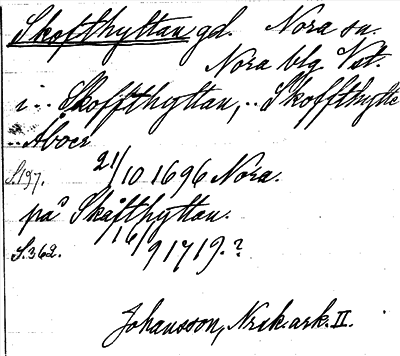 Skofthyttan gd. Nora sn.
Nora blg Vst.
i .. Skoffthyttan, .. Skoffthytte
.. Åboer
S.197. 21/10 1696 Nora.
på Skåfthyttan.
S.362. 16/9 1719.?
Johansson, Nrik.ark. II.